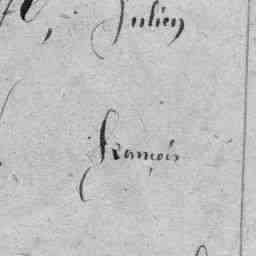 Julien
François